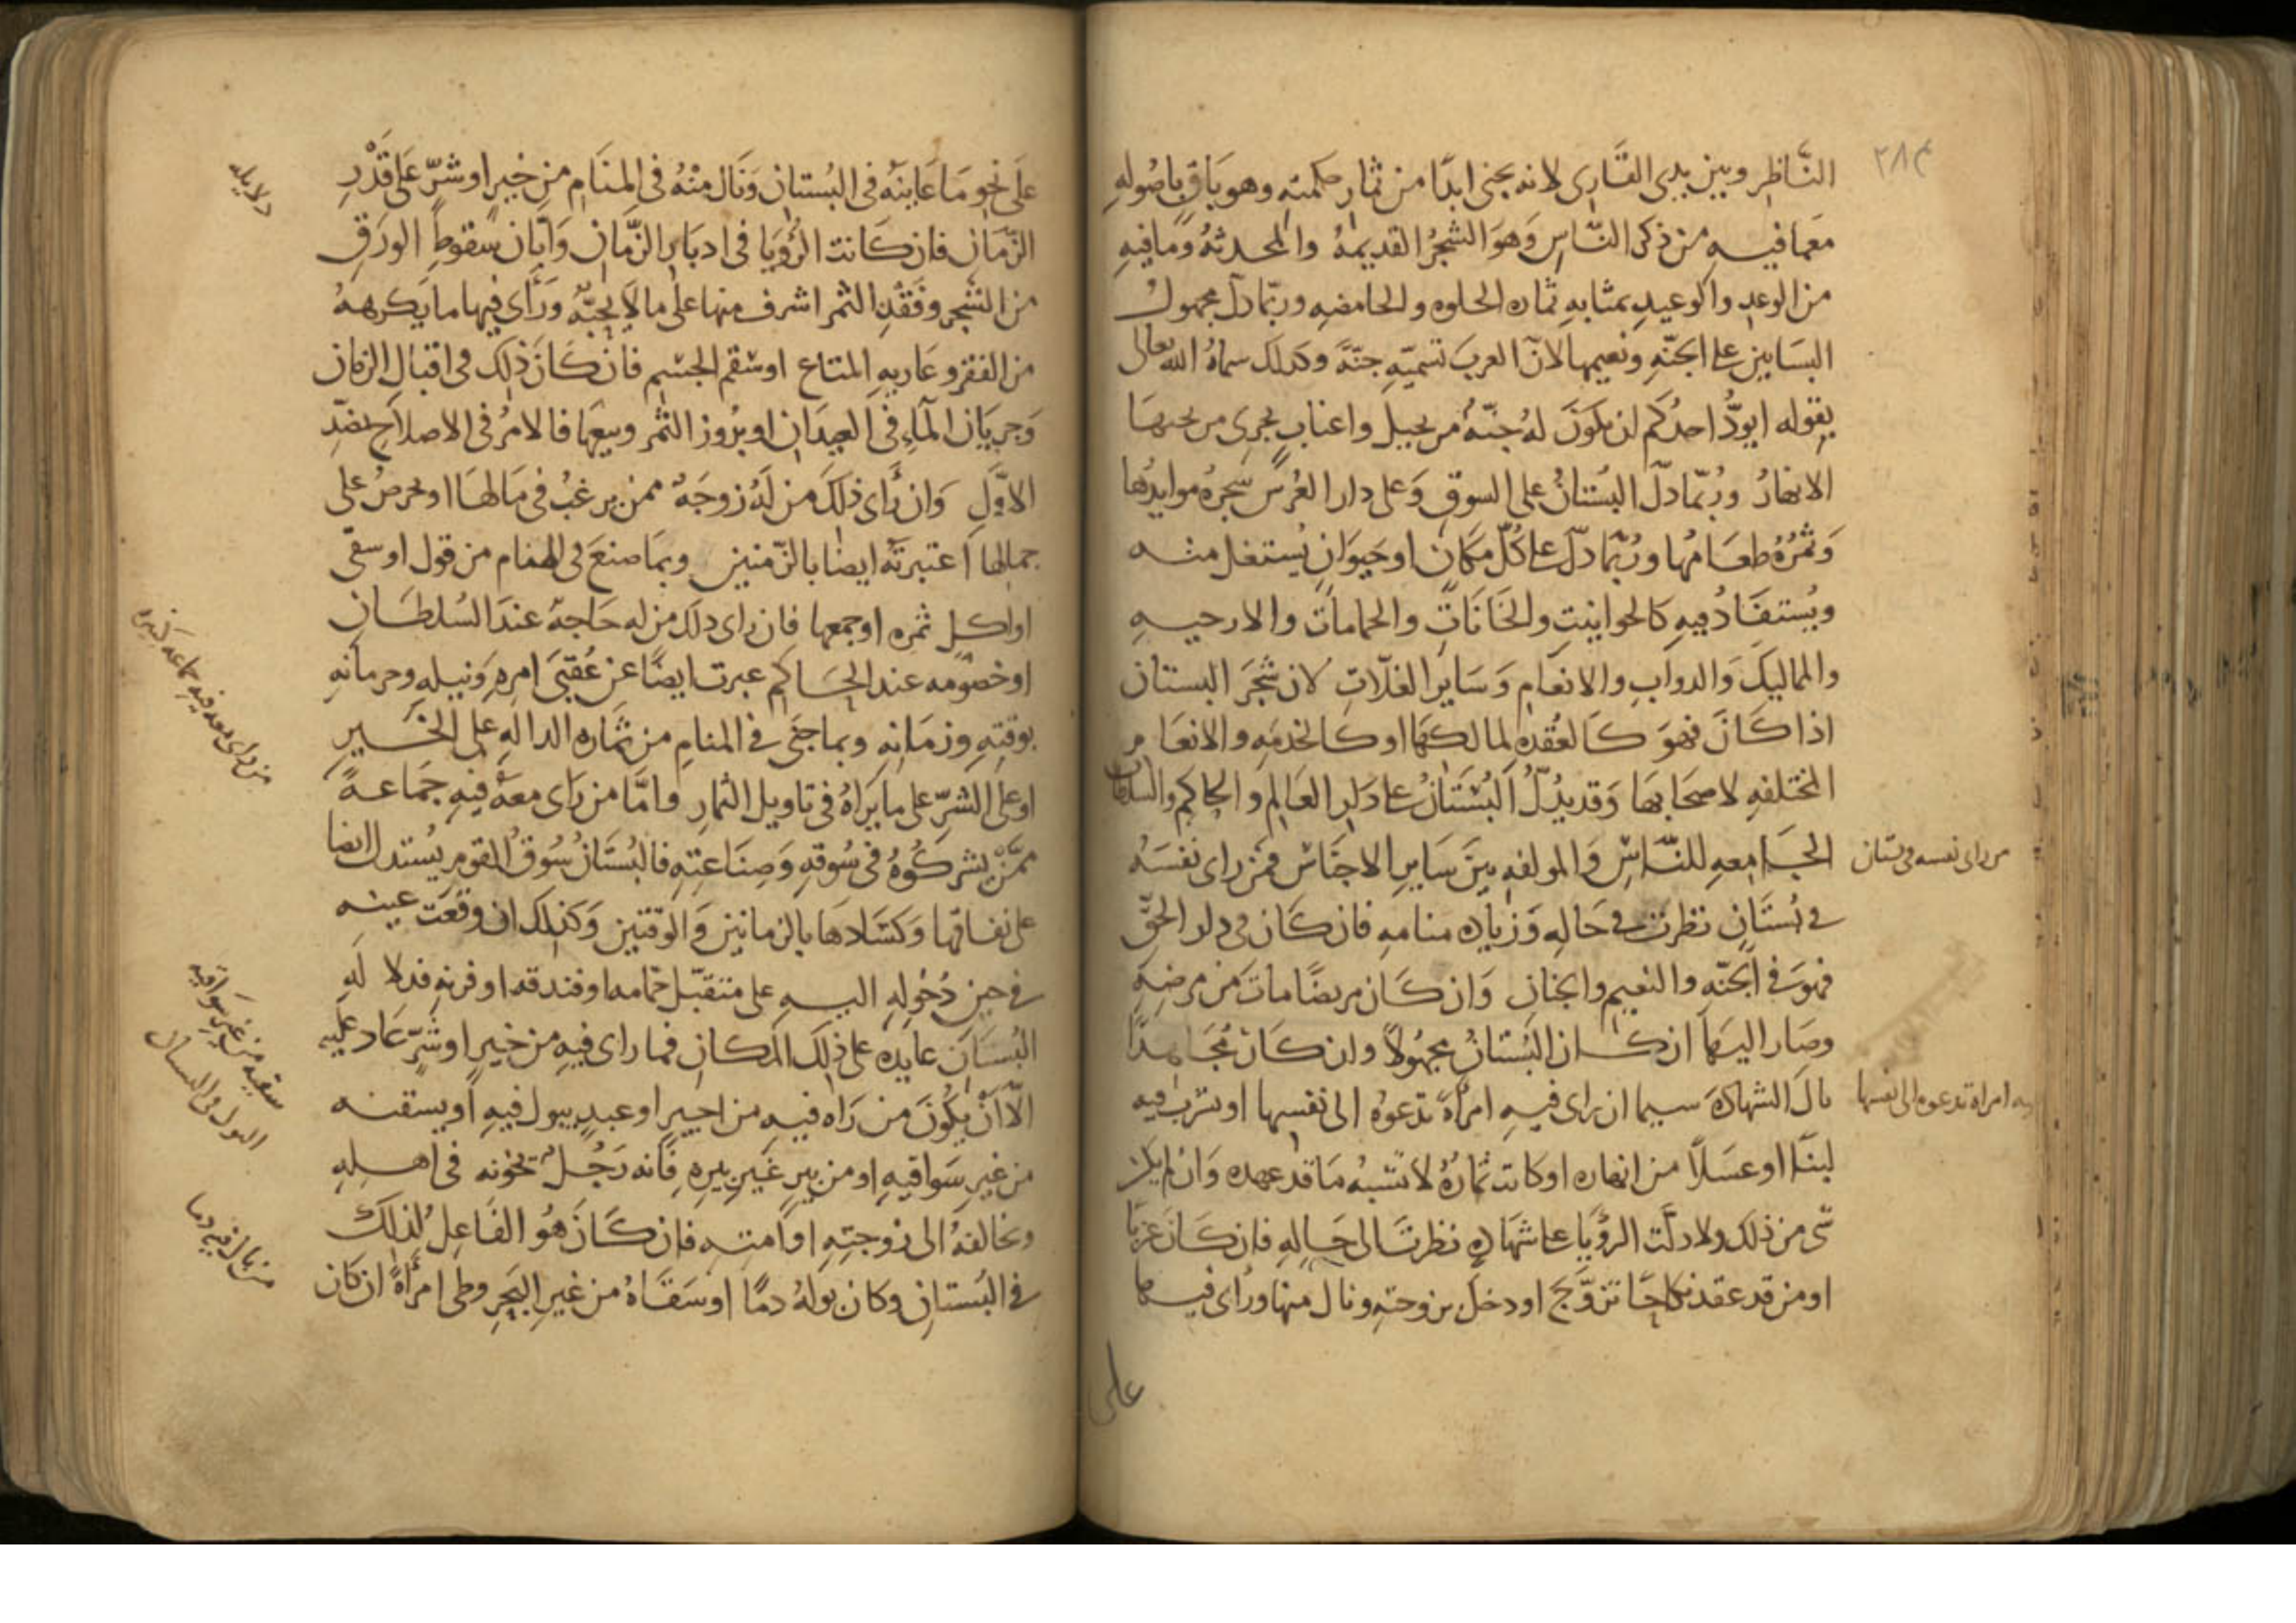 ٢٨٤
النَّاظِرِ وبين يدى القَارى لانه يجنى ابدًا من ثمار حكمته وهو باقٍ باصُوله
معما فيه من ذكر النّاس وَهوَ الشجرُ القديمهُ والمحدثهُ وَما فيهِ
من الوعدِ والوعيدِ بمثابهِ ثماره الحلوه والحامضه وربّما دلّ مجهول
البسَاتين على الجنّهِ ونعيمها لانّ العربَ تسميّهِ جنّةً وكذلك سماهُ الله تعالى
بقوله ايودُّ احدُكم ان تكوَنَ لهُ جنّهٌ من نخيلٍ واعنابٍ تجرى من تحتها
الانهارُ ورُبّما دلّ البُستانُ على السوقِ وَعلى دار العُرسِ شجرهُ موايدُها
وَثمرُهُ طعَامُها ورُبّما دلّ على كُلّ مكانٍ او حيوَانٍ يُستغل منه
ويُستفَادُ فيهِ كالحوانيت والخَانَاتِ والحمامات والارحيه
والمماليكَ وَالدوابِ والانعَامِ وَسَايرِ الغلّاتِ لان شجَرَ البستان
اذا كَانَ فهوَ كَالعُقدهِ لمالكهَا او كالخدمَهِ والانعَامِ
المختلفهِ لاصحَابهَا وَقد يدُلُّ البُستَانُ على دَارِ العَالِم وَالحاكم والسلطان
الجَامعهِ للنَّاسِ وَالمولفهِ بينَ سَاير الاجنَاسْ فمَن راى نفسَهُ
من راى نفسه فى بستان
فى بُستَانٍ نظرتَ فى حَالهِ وَزيَاده منامهِ فان كَان فى دار الحقِّ
فهوَ فى الجنّه والنعيم والجنانِ وَان كَان مريضًا ماتَ من مرضهِ
وصَار اليهَا ان كان البُستانُ مجهُولًا وان كَانَ مُجَاهدًا
نالَ الشهادَهَ سيما ان راى فيهِ امرأهً تدعوهُ الى نفسها او يشرب فيه
فيه امراة تدعوه الى نفسها
لبنًا او عسَلاً من انهاره او كانت ثمَارُهُ لا تشبهُ مَا قد عهده وَان لم يكن
شى من ذلك ولا دلّت الرؤيَا على شهَادهٍ نظرتَ الى حَالِهِ فان كَانَ عزبًا
او من قد عقد نكاحًا تزوَّج او دخلَ بزوجته ونال منها وراى فيها
على
عَلى نحو مَا عَاينهُ فى البُستانِ وَنَال مِنْهُ فى المنَامِ من خيرٍ او شرّ عَلى قَدْرِ
دلايله
الزّمَانِ فان كَانت الرُّؤيَا فى ادبَارِ الزّمانِ وَابّان سُقوطِ الورَقِ
من الشجر وفَقْدِ الثمر اشرف منها على مالا يحبّهُ وَرَأى فيها ما يَكرههُ
من الفقر وعَاريهِ المتاع او سُقم الجسم فان كَانَ ذلك فى اقبال الزمان
وَجرَيَان الماءِ فى العيدَانِ او بُروز الثمر وينعهَا فالامرُ فى الاصلَاحِ بضدِّ
الاوّلِ وَان رَاى ذلكَ من لَهُ زوجَهٌ ممن يرغبُ فى مَالهَا او يحرصُ على
جمالها اعتبرتهُ ايضًا بالزّمنين وبمَا صنعَ فى المنام من قول او سقى
او اكلِ ثمره او جمعها فان راى ذلك من له حَاجهٌ عندَ السُلطَانِ
او خصُومه عند الحَاكم عبرت ايضًا عن عُقبَى امرِهِ وَنيلهِ وحرمانهِ
بوقتهِ وزمَانهِ وبما جنَى فى المنامِ من ثمَاره الدالهِ على الخَيرِ
او على الشرِّ على ما يرَاهُ فى تاويل الثمارِ واَمَّا من رَاى معهُ فيهِ جمَاعهً
من راى معه فيه جماعه كثيره
ممَّنْ يشركُوهُ فى سُوقهِ وَصِنَاعتِهِ فالبُستَانُ سُوقُ القوم يُستدل ايضا
على نفاقهَا وَكسَادهَا بالزمانين وَالوقتين وَكذلك ان وقعَت عينه
فى حين دُخُولهِ اليهِ على متقبّل حمّامه او فندقه او فرنهِ فدلالهَ
البُستَانِ عايده على ذلكَ المكَانِ فما راى فيهِ من خيرٍ او شرٍّ عَاد عليه
الّا أنْ يكُونَ من رَاه فيهِ من اجيرٍ او عبدٍ يبول فيهِ او يسقنه
سقيه من غير سَواقيه
البول فى البستان
من غير سَواقيهِ او من بيرٍ غيرِ بيرهِ فَانه رَجُلٌ تخونه فى اهلهِ
وتخالفهُ الى زوجتهِ او امتهِ فان كَانَ هوُ الفَاعل لذلكَ
فى البُستانِ وكان بَولهُ دمًا او سقَاهُ من غير البَحر وطى امرأهً ان كان
من بال فيه دما